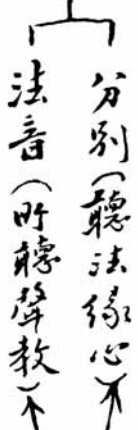 分別（聽法緣心）
法音（所聽聲教）